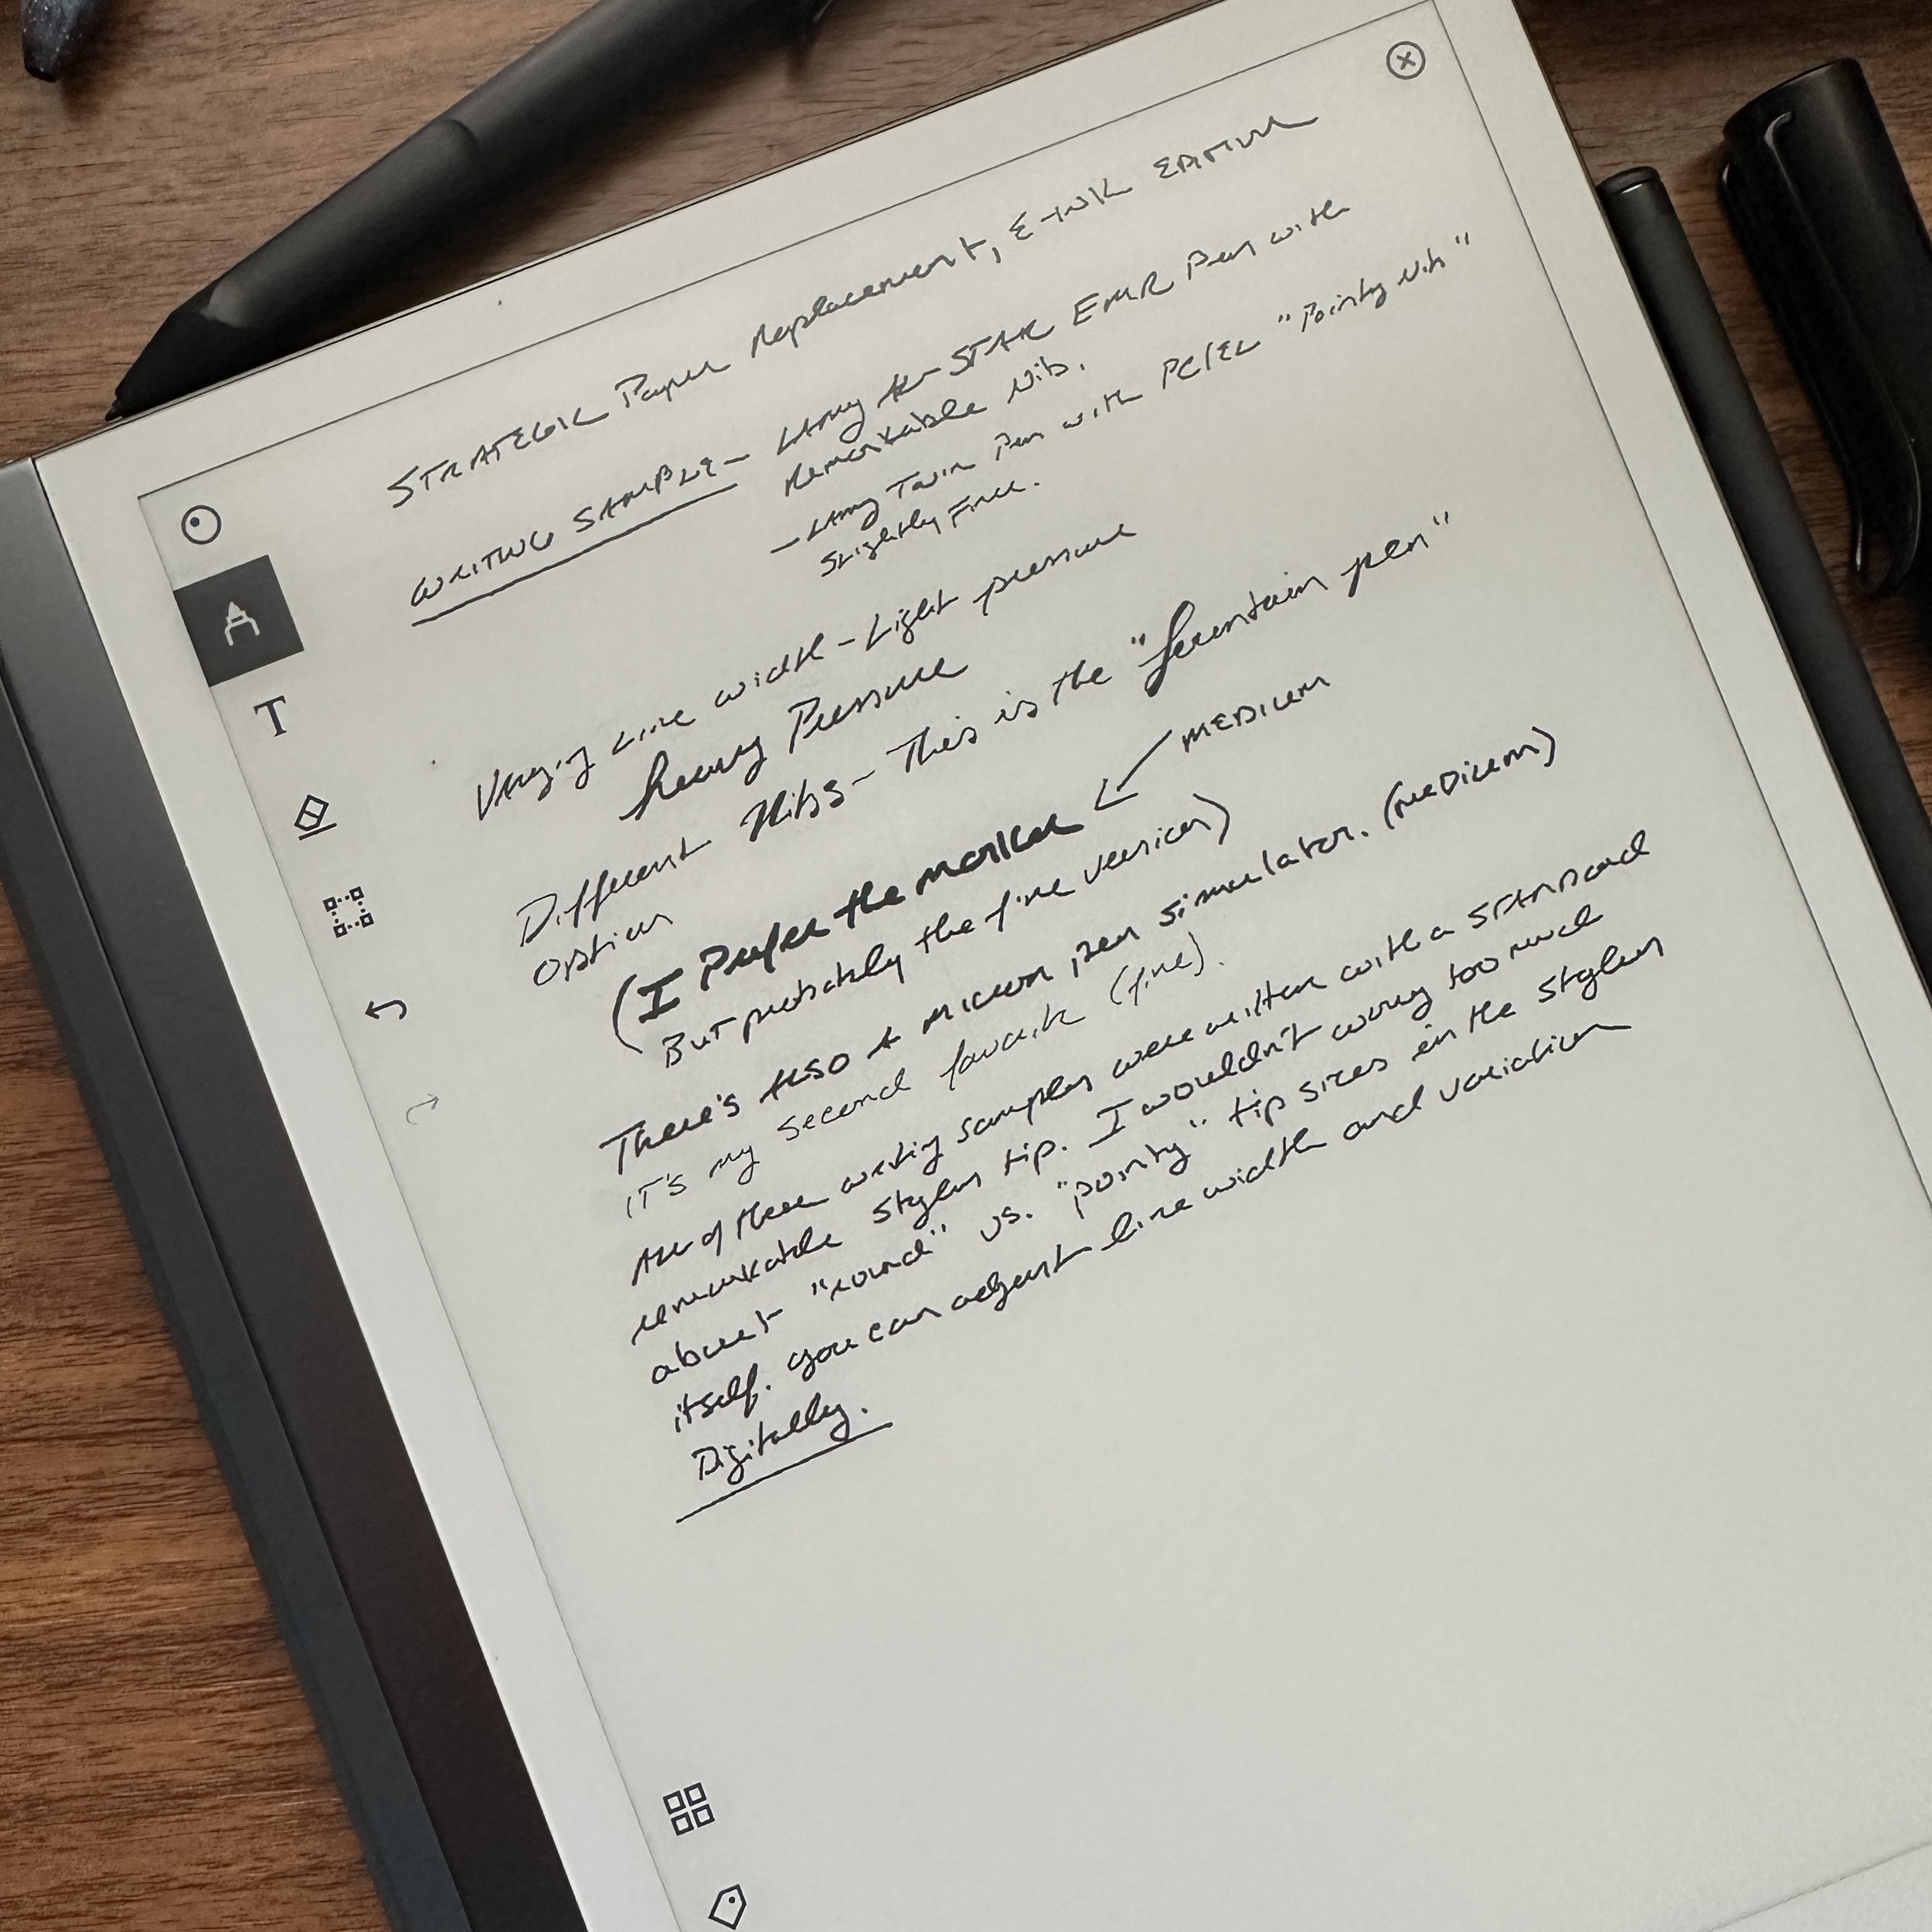 STRATEGIC Paper Replacement, E-INK EDITION
WRITING SAMPLE - LAMY AL-STAR EMR Pen with
Remarkable Nib.
- LAMY Twin Pen with PC/EL "Pointy Nib"
Slightly Finer.
Varying Line width - Light pressure
heavy Pressure
Different Nibs - This is the "fountain pen"
option
MEDIUM
(I Prefer the marker
But probably the fine version)
There's ALSO A micron pen simulator. (medium)
IT'S my second favorite (fine).
All of these writing samples were written with a STANDARD
remarkable stylus tip. I wouldn't worry too much
about "round" vs. "pointy" tip sizes in the stylus
itself. you can adjust line width and variation
Digitally.
T